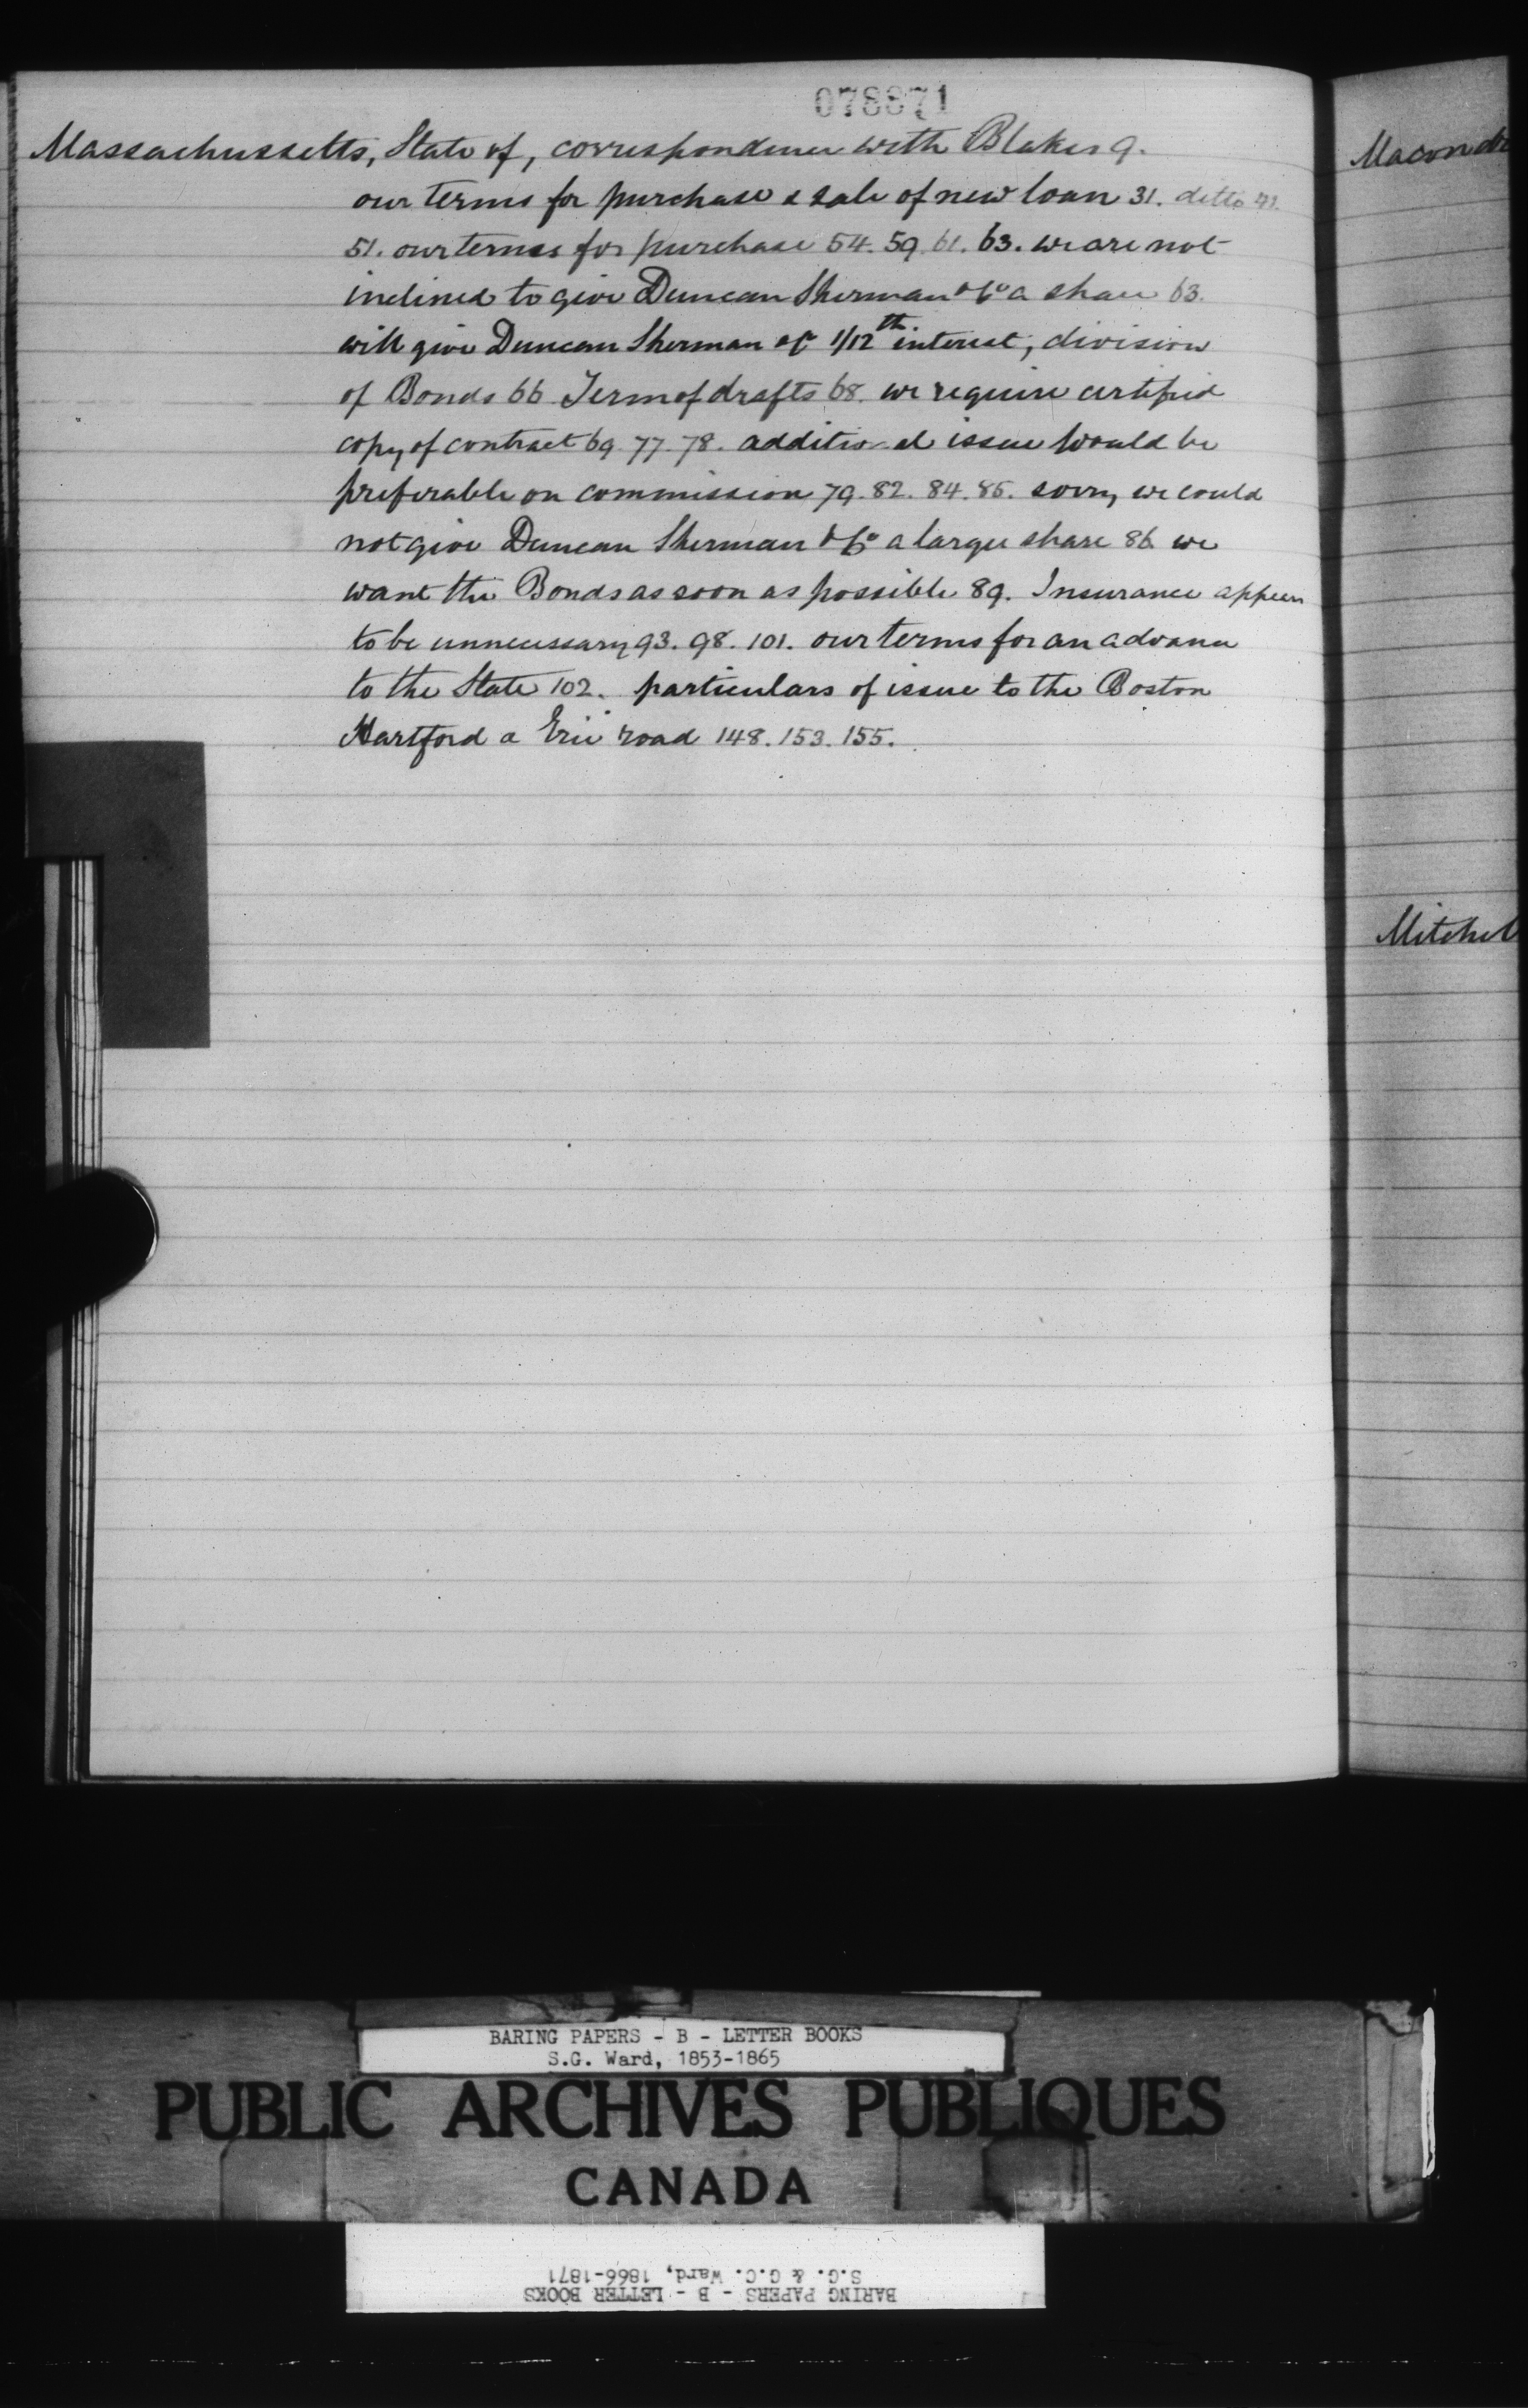 078871
Massachussetts, State of, correspondence with Blakes 9.
our terms for purchase & sale of new loan 31. ditto 41.
51. our terms for purchase 54. 59. 61. 63. we are not
inclined to give Duncan Sherman & Co a share 63.
will give Duncan Sherman & Co 1/12th interest, division
of Bonds 66 Term of drafts 68. we require certified
copy of contract 69. 77. 78. additional issue would be
preferable on commission 79. 82. 84. 85. sorry we could
not give Duncan Sherman & Co a larger share 86 we
want the Bonds as soon as possible 89. Insurance appears
to be unnecessary 93. 98. 101. our terms for an advance
to the State 102. particulars of issue to the Boston
Hartford & Erie road 148. 153. 155.
Macondr
Mitchel
BARING PAPERS - B - LETTER BOOKS
S.G. Ward, 1853-1865
PUBLIC ARCHIVES PUBLIQUES
CANADA
BARING PAPERS - B - LETTER BOOKS
S.G. & G.C. Ward, 1866-1871